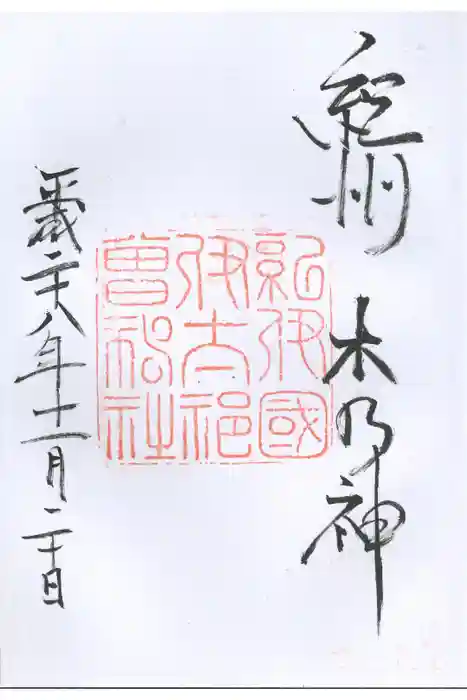 紀州 木乃神
紀伊國
伊太祁
曽神社
平成二十八年十一月二十日